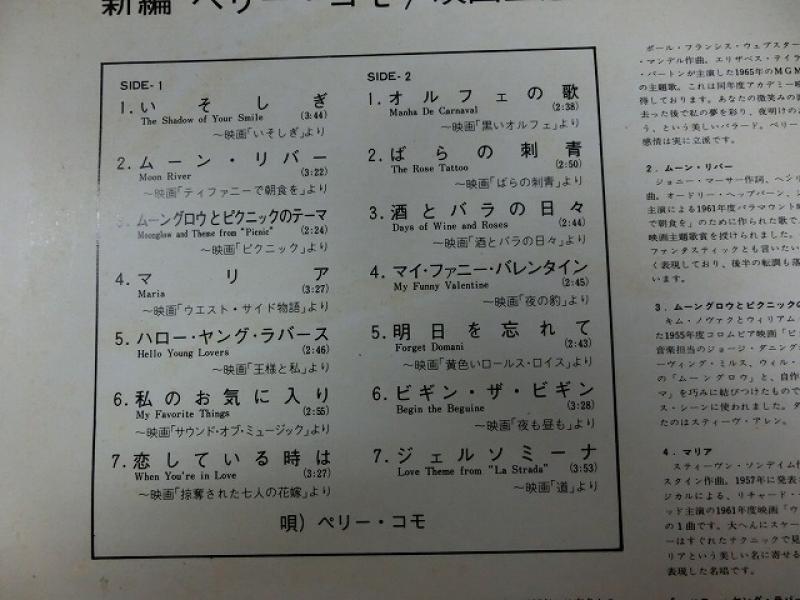 新編 ペリー・コモ/
SIDE-1
1. いそしぎ
The Shadow of Your Smile (3:44)
〜映画「いそしぎ」より
2. ムーン・リバー
Moon River (3:22)
〜映画「ティファニーで朝食を」より
3. ムーングロウとピクニックのテーマ
Moonglow and Theme from "Picnic" (2:24)
〜映画「ピクニック」より
4. マリア
Maria (3:27)
〜映画「ウエスト・サイド物語」より
5. ハロー・ヤング・ラバース
Hello Young Lovers (2:46)
〜映画「王様と私」より
6. 私のお気に入り
My Favorite Things (2:55)
〜映画「サウンド・オブ・ミュージック」より
7. 恋している時は
When You're in Love (3:27)
〜映画「掠奪された七人の花嫁」より
SIDE-2
1. オルフェの歌
Manha De Carnaval (2:38)
〜映画「黒いオルフェ」より
2. ばらの刺青
The Rose Tattoo (2:50)
〜映画「ばらの刺青」より
3. 酒とバラの日々
Days of Wine and Roses (2:44)
〜映画「酒とバラの日々」より
4. マイ・ファニー・バレンタイン
My Funny Valentine (2:45)
〜映画「夜の豹」より
5. 明日を忘れて
Forget Domani (2:43)
〜映画「黄色いロールス・ロイス」より
6. ビギン・ザ・ビギン
Begin the Beguine (3:28)
〜映画「夜も昼も」より
7. ジェルソミーナ
Love Theme from "La Strada" (3:53)
〜映画「道」より
唄) ペリー・コモ
ポール・フランシス・ウェブスター
・マンデル作曲。エリザベス・テイラ
・バートンが主演した1965年のMGM
の主題歌。これは同年度アカデミー
得しております。あなたの微笑みの
去った後で私の夢を彩り、夜明けの
う、という美しいバラード。ペリー
感情は実に立派です。
2. ムーン・リバー
ジョニー・マーサー作詞、ヘンリ
曲。オードリー・ヘップバーン、
主演による1961年度パラマウント
で朝食を」のために作られた歌で
映画主題歌賞を授けられました。
ファンタスティックとも言いたい
く表現しており、後半の転調も
います。
3. ムーングロウとピクニックの
キム・ノヴァクとウィリアム
た1955年度コロムビア映画「ピ
音楽担当のジョージ・ダニング
ーヴィング・ミルス、ウィル・
の「ムーングロウ」と、自作
マ」を巧みに結びつけたもので
ス・シーンに使われました。
たのはスティーヴ・アレン。
4. マリア
スティーヴン・ソンデイム
スタイン作曲。1957年に発表
ジカルによる、リチャード・
ッド主演の1961年度映画「ウ
の1曲です。大へんにスケー
ーはすぐれたテクニックで見
リアという美しい名に寄せる
表現した名唱です。